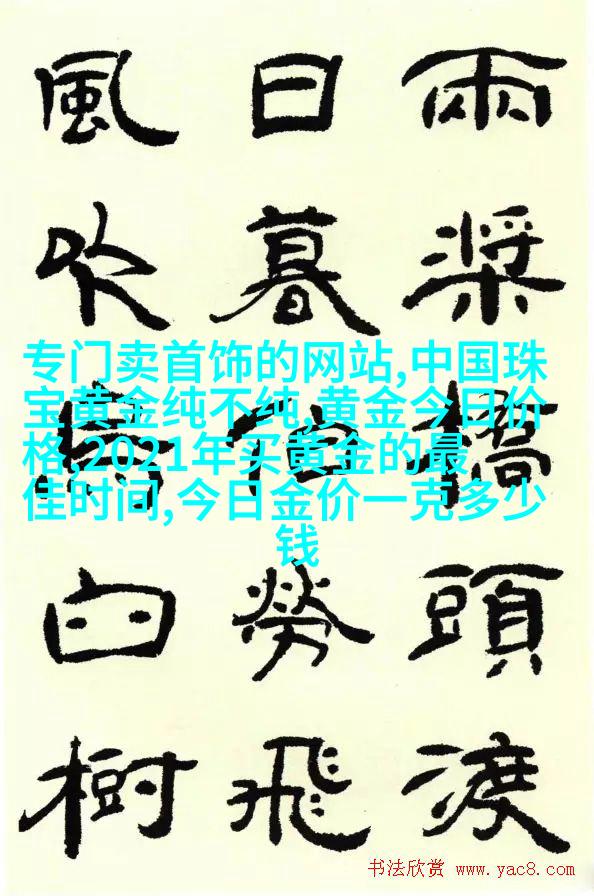 兩槳橋頭渡
日暮伯勞飛
風吹烏臼樹
专门卖首饰的网站,中国珠
宝黄金纯不纯,黄金今日价
格,2021年买黄金的最
佳时间,今日金价一克多少
钱
书法欣赏 www.yac8.com